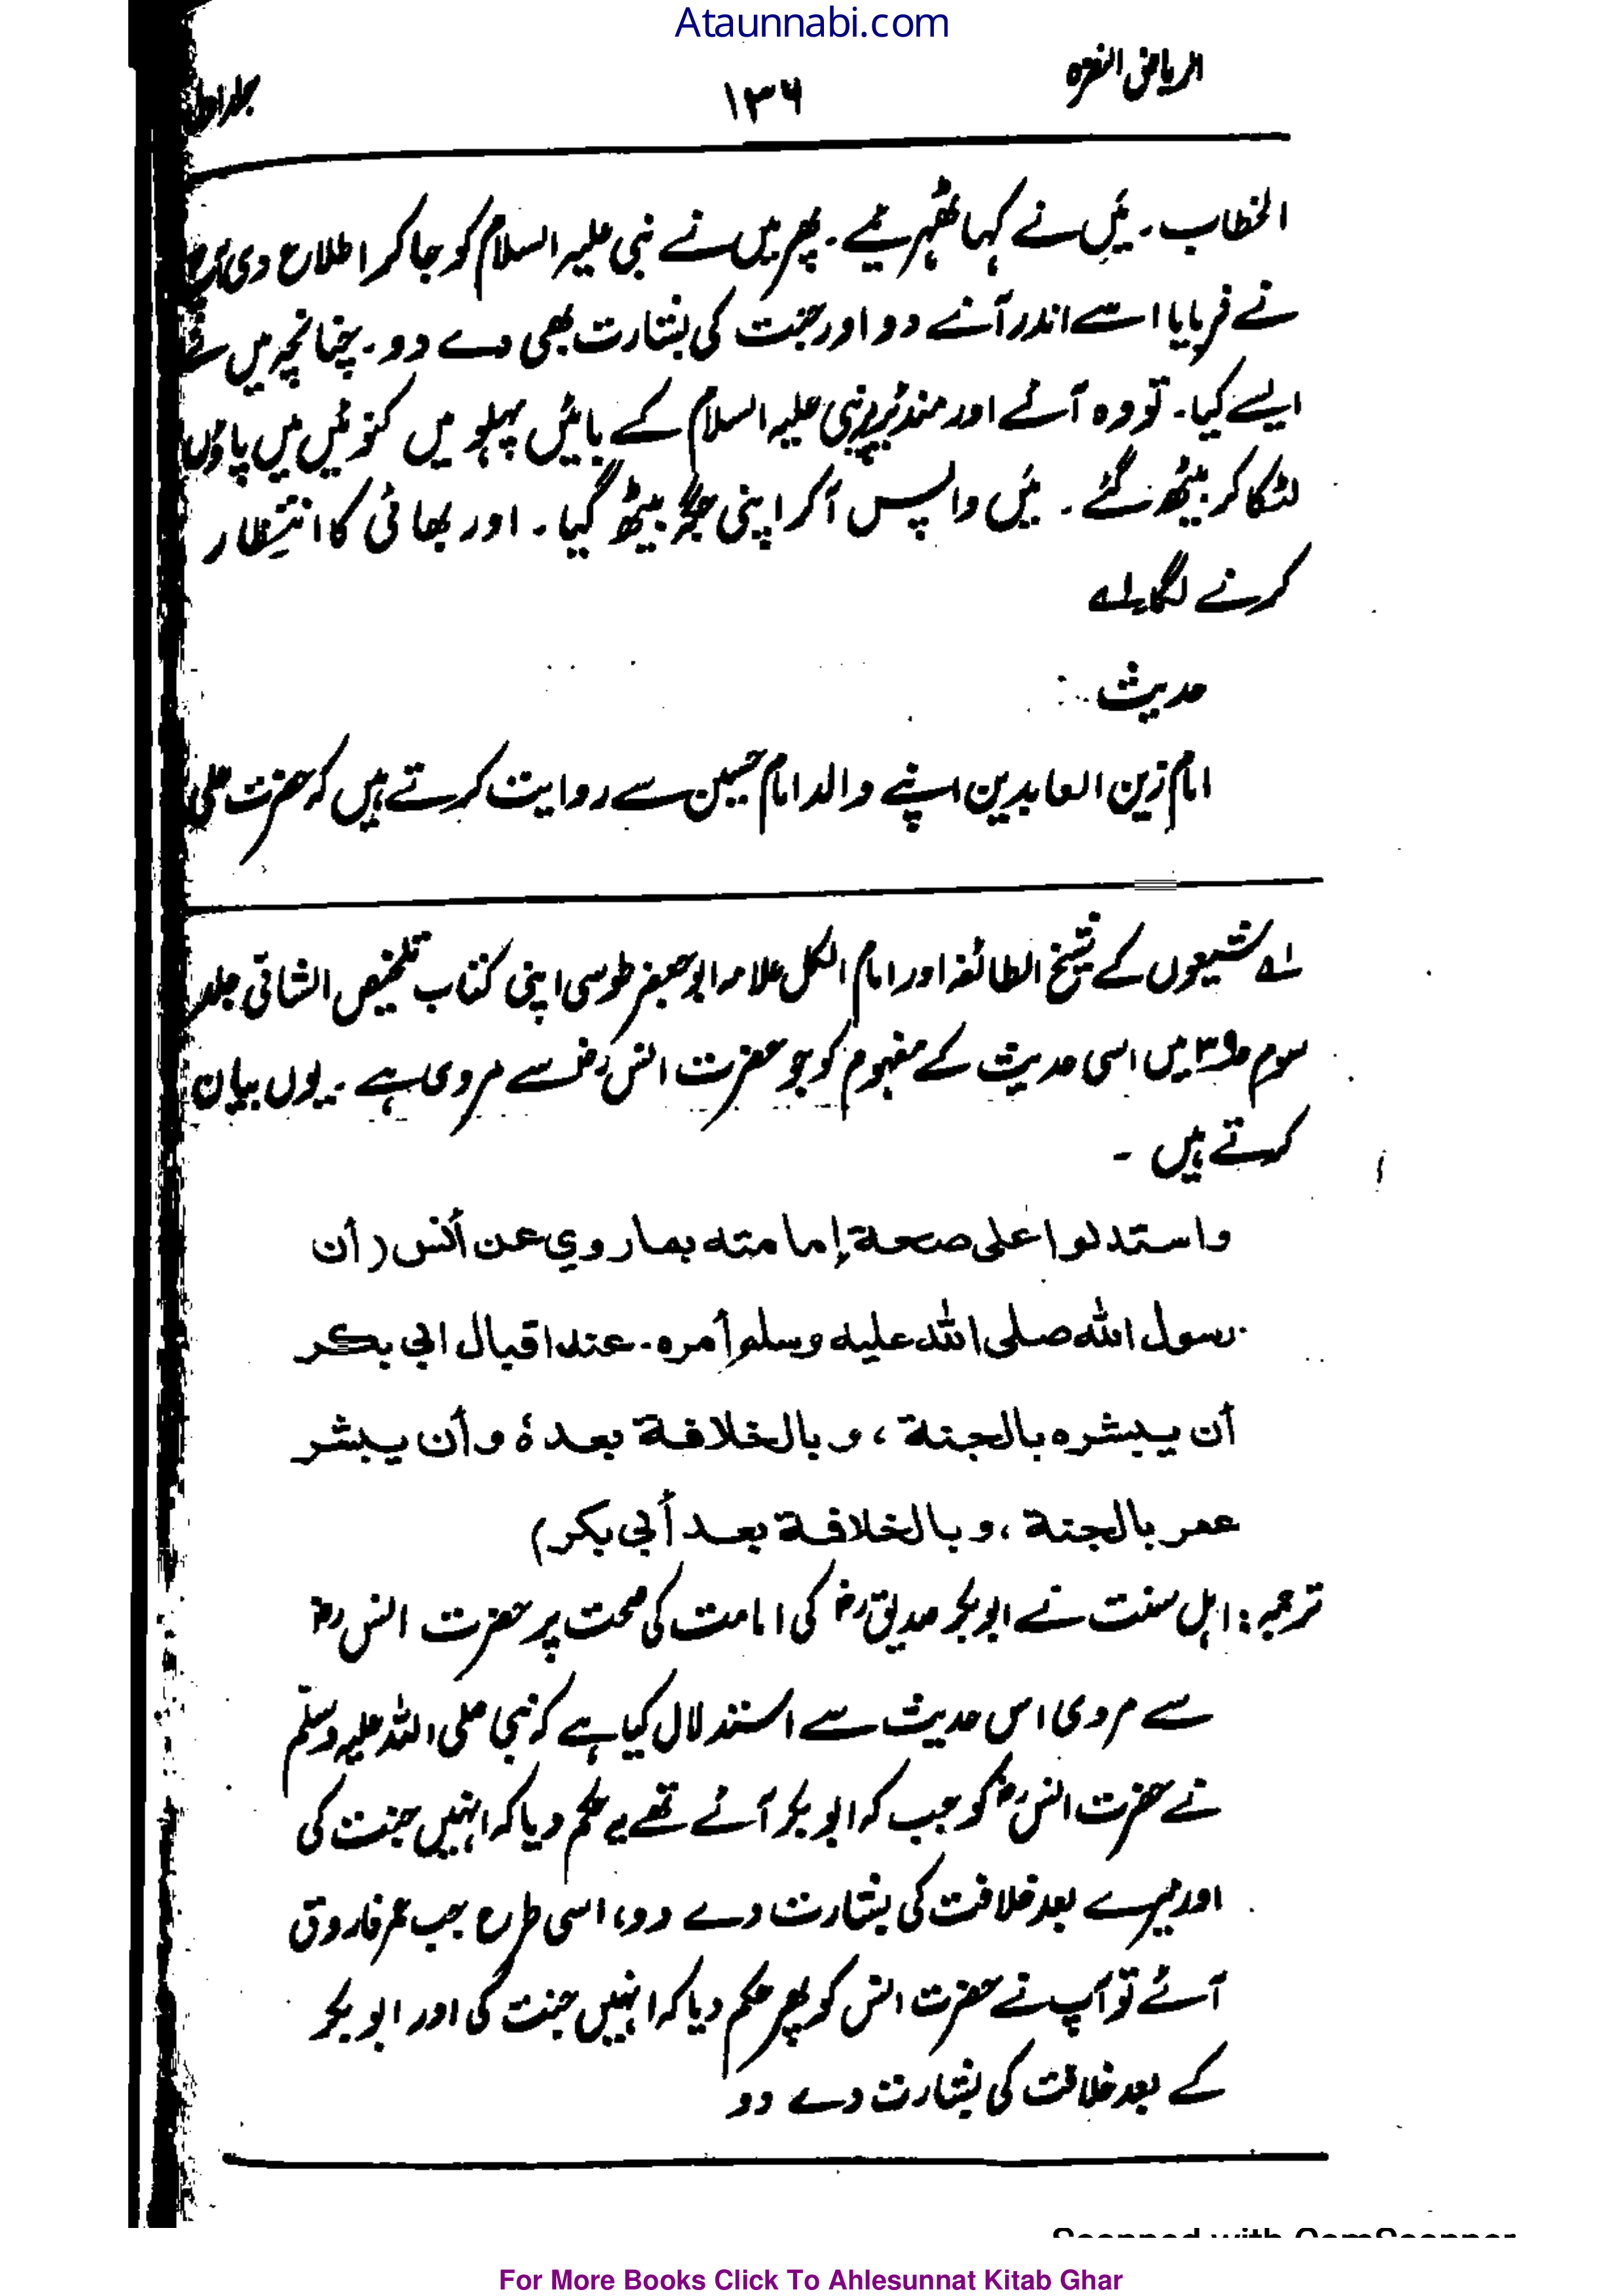 Ataunnabi.com
الریاض النضرہ ۱۳۶ جلد اول
الخطاب۔ میں نے کہا ٹھہریئے۔ پھر میں نے نبی علیہ السلام کو جا کر اطلاع دی
نے فرمایا اسے اندر آنے دو اور جنت کی بشارت بھی دے دو۔ چنانچہ میں نے
ایسے کیا۔ تو وہ آئے اور منڈیر پر نبی علیہ السلام کے بائیں پہلو میں کنوئیں میں پاؤں
لٹکا کر بیٹھ گئے۔ میں واپس آکر اپنی جگہ بیٹھ گیا۔ اور بھائی کا انتظار
کرنے لگا۔ لہ
حدیث :
امام زین العابدین اپنے والد امام حسین سے روایت کرتے ہیں کہ حضرت علی
لہ شیعوں کے شیخ الطائفہ اور امام الکل علامہ ابو جعفر طوسی اپنی کتاب تلخیص الشافی جلد
سوم ص۳۹ میں اسی حدیث کے مفہوم کو جو حضرت انس رض سے مروی ہے۔ یوں بیان
کرتے ہیں ۔
واستدلوا على صحة إمامته بماروي عن أنس (أن
رسول الله صلى الله عليه وسلم أمره۔ عند اقبال ابي بكر
أن يبشره بالجنة ، وبالخلافة بعدهٔ وأن يبشر
عمر بالجنة ، وبالخلافة بعد أبي بكر)
ترجمہ: اہل سنت نے ابو بکر صدیق رض کی امامت کی صحت پر حضرت انس رض
سے مروی اس حدیث سے استدلال کیا ہے کہ نبی صلی اللہ علیہ وسلم
نے حضرت انس رض کو جب کہ ابو بکر آئے تھے یہ حکم دیا کہ انہیں جنت کی
اور میرے بعد خلافت کی بشارت دے دو، اسی طرح جب عمر فاروق
آئے تو آپ نے حضرت انس کو پھر حکم دیا کہ انہیں جنت کی اور ابو بکر
کے بعد خلافت کی بشارت دے دو
Scanned with CamScanner
For More Books Click To Ahlesunnat Kitab Ghar